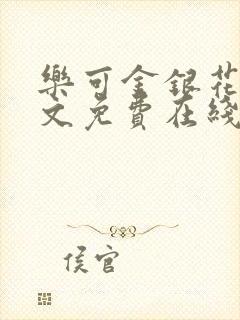 樂可金銀花
文免費在綫
侯官